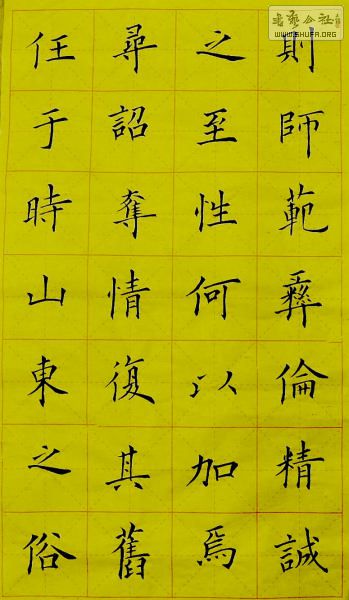 則師範彞倫精誠
之至性何以加焉
尋詔奪情復其舊
任于時山東之俗
書藝公社
WWW.SHUFA.ORG